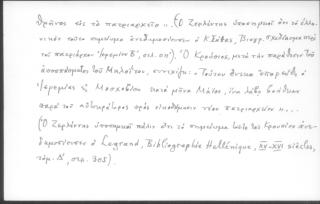 θρῆνος εἰς τὸ πατριαρχεῖο". (Ὁ Ζερλέντης ὑποσημειοῖ ὅτι τὸ ἑλλη-
νικὸν τοῦτο σημείωμα ἀνεδημοσίευσεν ὁ Κ. Σάθας, Βιογρ. σχεδίασμα περὶ
τοῦ πατριάρχου Ἱερεμίου Β', σελ. ). Ὁ Κρούσιος, μετὰ τὴν παράθεσιν τοῦ
ἀποσπάσματος τοῦ, συνεχίζει: "Τούτου ἕνεκα ἐπορεύθη ὁ
Ἱερεμίας εἰς Μοσχοβίαν κατὰ μῆνα Μάιον, ἵνα λάβῃ βοήθειαν
παρὰ τοῦ αὐτοκράτορος πρὸς οἰκοδόμησιν νέου πατριαρχείου"...
(Ὁ Ζερλέντης ὑποσημειοῖ πάλιν ὅτι τὸ σημείωμα τοῦτο τοῦ Κρουσίου ἀνε-
δημοσίευσεν ὁ Legrand, Bibliographie Hellénique, XV-XVI siècles,
τόμ. Δ', σελ. 305).